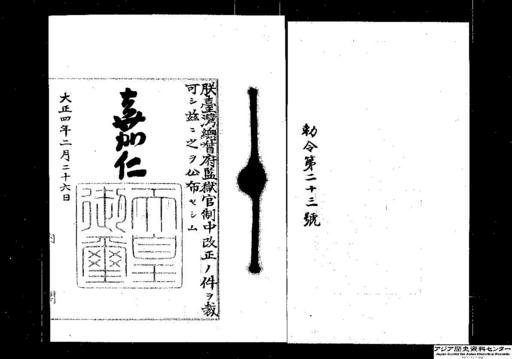 勅令第二十三號
朕臺灣總督府監獄官制中改正ノ件ヲ裁
可シ玆ニ之ヲ公布セシム
嘉仁
天皇
御璽
大正四年二月二十六日
アジア歴史資料センター
Japan Center for Asian Historical Records